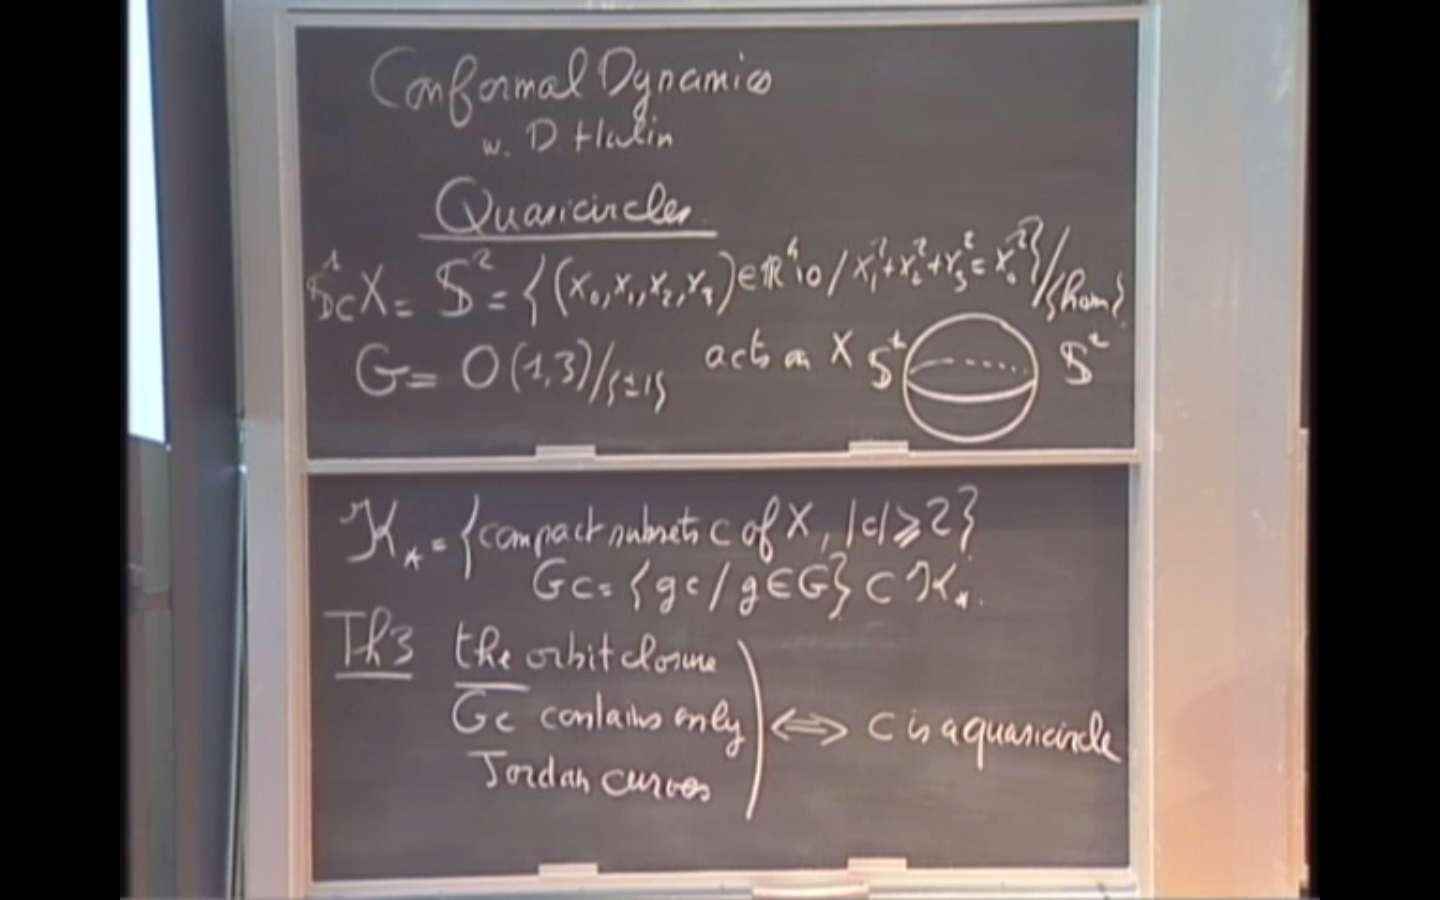 Conformal Dynamics
w. D. Hulin
Quasicircles
𝕊¹⊂X = 𝕊² = {(x₀,x₁,x₂,x₃)∈ℝ⁴∖0 / x₁²+x₂²+x₃²=x₀²}/{hom}
G = O(1,3)/{±1} acts on X 𝕊¹ 𝕊²
𝒦⋆ = {compact subsets c of X, |c|⩾2}
Gc = {gc / g∈G} ⊂ 𝒦⋆.
Th3 the orbit closure
G̅c̅ contains only ⟺ c is a quasicircle
Jordan curves